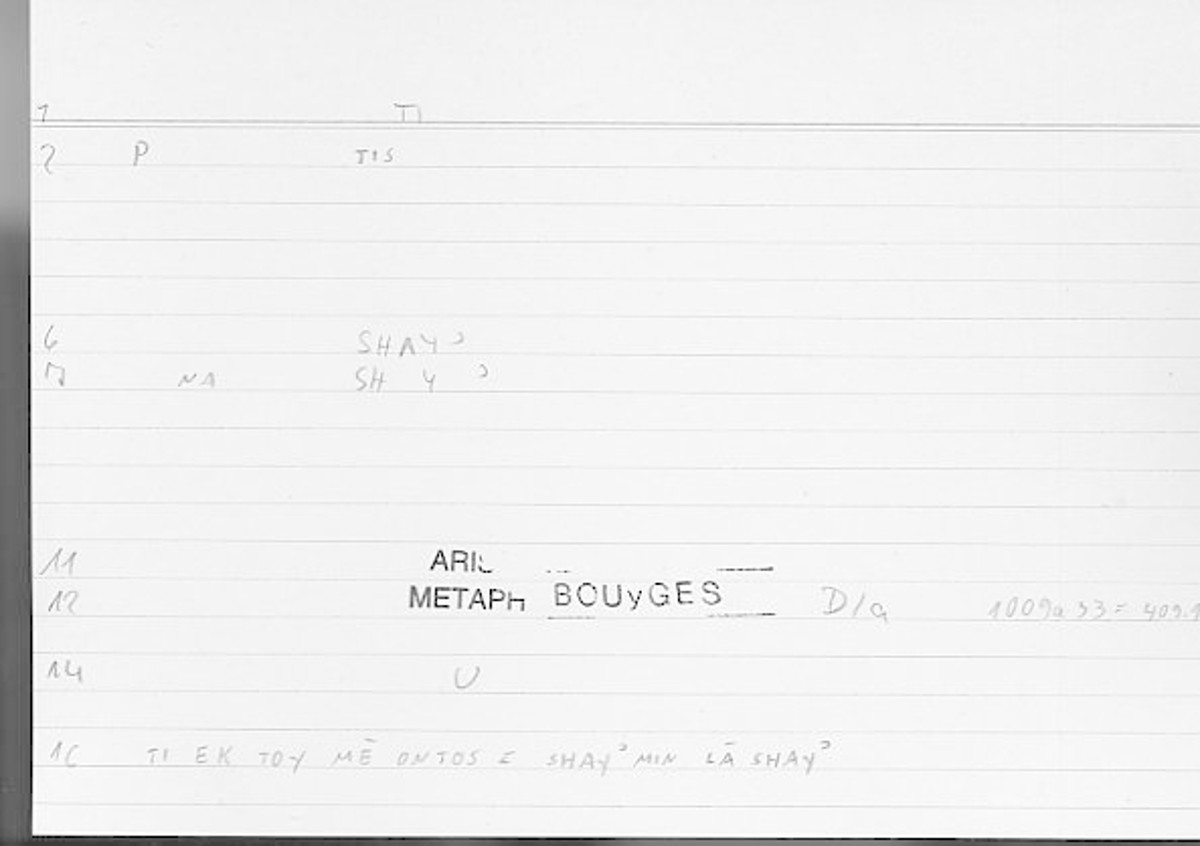 1 TI
2 P TIS
6 SHAYʾ
7 NA SH Y ʾ
11 ARIS
12 METAPH BOUyGES D/a 1009a33 = 409.1
14 U
16 TI EK TOY MĒ ONTOS = SHAYʾ MIN LĀ SHAYʾ